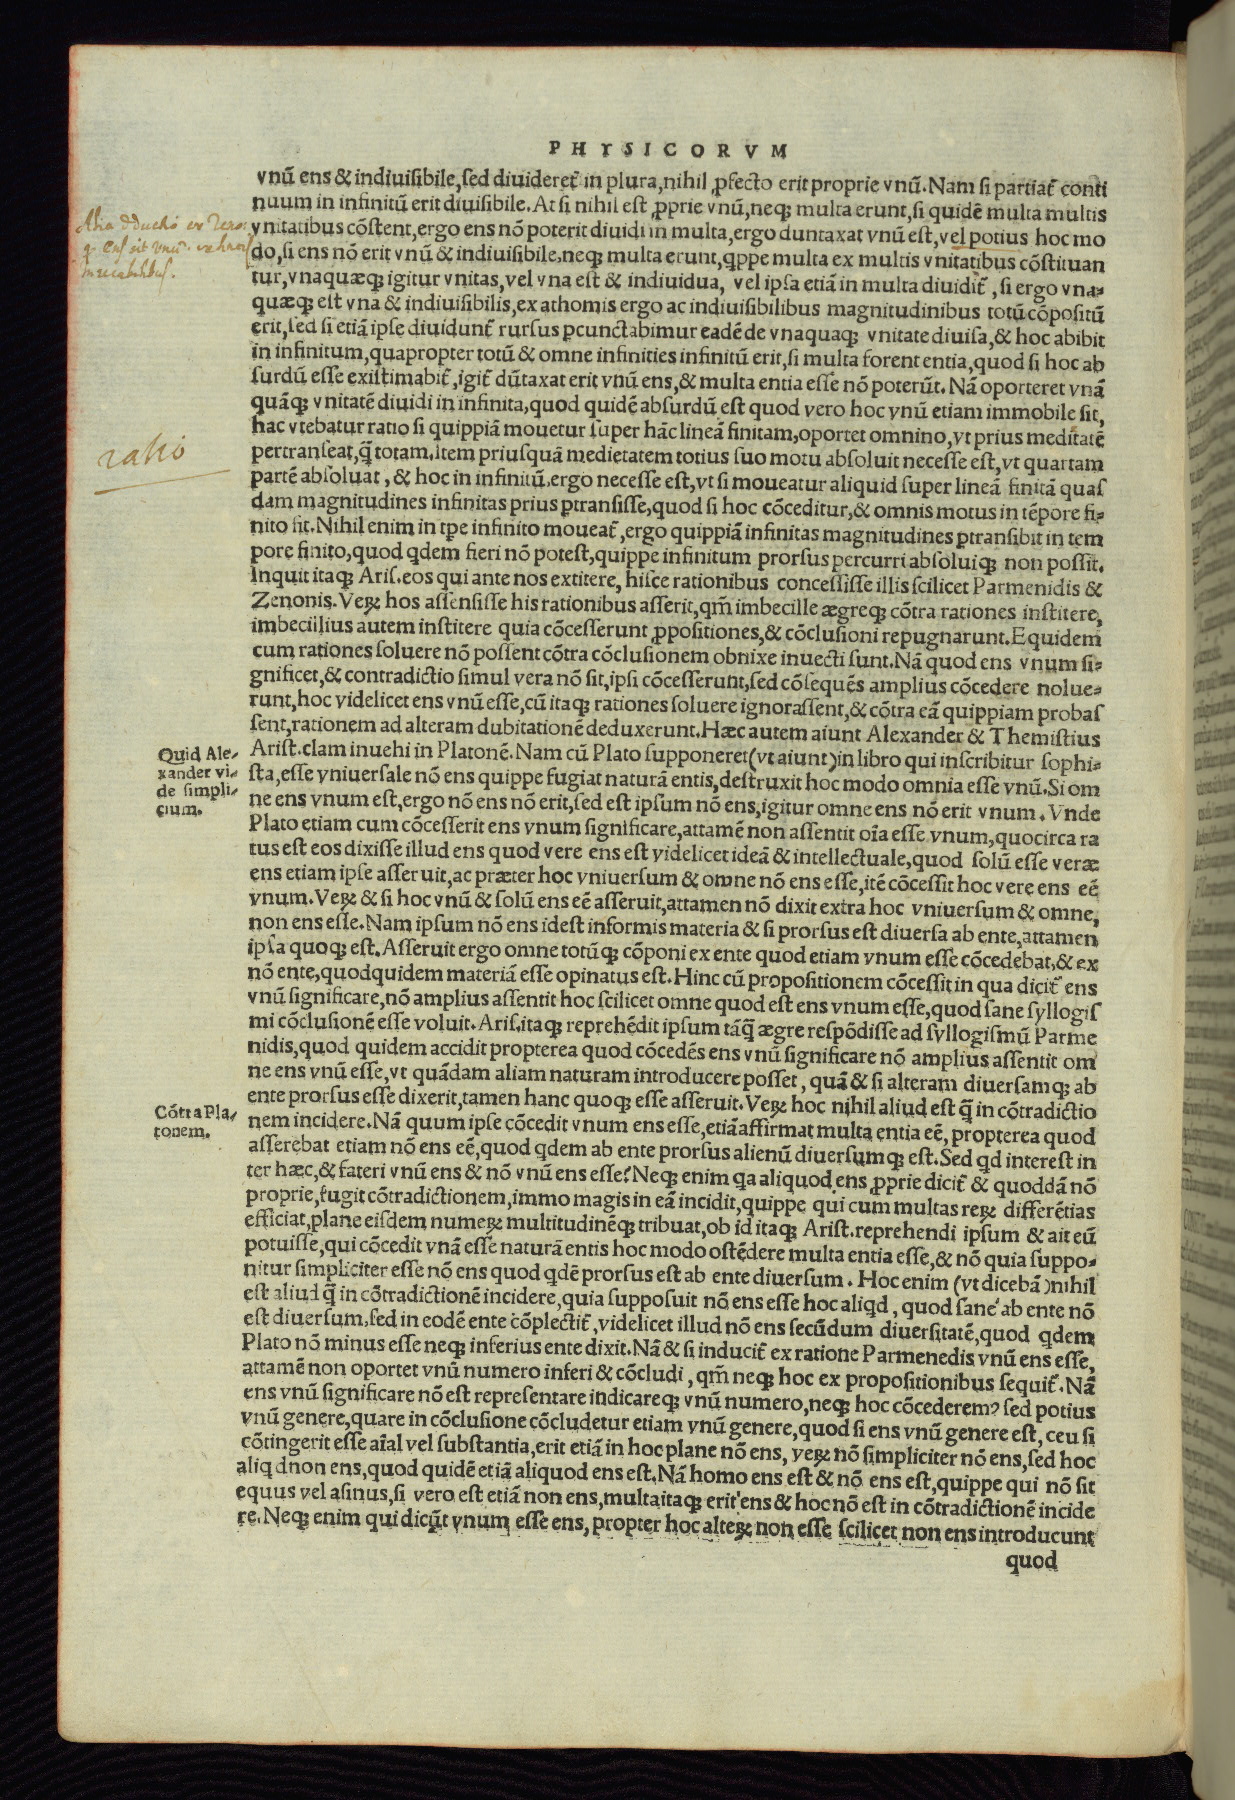 PHYSICORVM
vnũ ens & indiuisibile, sed diuideret᷑ in plura, nihil ꝓfecto erit proprie vnũ. Nam si partiat᷑ conti
nuum in infinitũ erit diuisibile. At si nihil est ꝓprie vnũ, neqꝫ multa erunt, si quidẽ multa multis
vnitatibus cõstent, ergo ens nõ poterit diuidi in multa, ergo duntaxat vnũ est, vel potius hoc mo
do, si ens nõ erit vnũ & indiuisibile, neqꝫ multa erunt, qppe multa ex multis vnitatibus cõstituan
tur, vnaquæqꝫ igitur vnitas, vel vna est & indiuidua, vel ipsa etiã in multa diuidit᷑, si ergo vna-
quæqꝫ est vna & indiuisibilis, ex athomis ergo ac indiuisibilibus magnitudinibus totũ cõpositũ
erit, sed si etiã ipse diuidunt᷑ rursus ꝑcunctabimur eadẽ de vnaquaqꝫ vnitate diuisa, & hoc abibit
in infinitum, quapropter totũ & omne infinities infinitũ erit, si multa forent entia, quod si hoc ab
surdũ esse existimabit᷑, igit᷑ dũtaxat erit vnũ ens, & multa entia esse nõ poterũt. Nã oporteret vnã
quãqꝫ vnitatẽ diuidi in infinita, quod quidẽ absurdũ est quod vero hoc vnũ etiam immobile sit,
hac vtebatur ratio si quippiã mouetur super hãc lineã finitam, oportet omnino, vt prius meditatẽ
pertranseat, q̃ totam. item priusquã medietatem totius suo motu absoluit necesse est, vt quartam
partẽ absoluat, & hoc in infinitũ, ergo necesse est, vt si moueatur aliquid super lineã finitã quas
dam magnitudines infinitas prius ꝑtransisse, quod si hoc cõceditur, & omnis motus in tẽpore fi-
nito sit. Nihil enim in tꝑe infinito moueat᷑, ergo quippiã infinitas magnitudines ꝑtransibit in tem
pore finito, quod qdem fieri nõ potest, quippe infinitum prorsus percurri absoluiqꝫ non possit.
Inquit itaqꝫ Aris. eos qui ante nos extitere, hisce rationibus concessisse illis scilicet Parmenidis &
Zenonis. Veꝝ hos assensisse his rationibus asserit, qm̃ imbecille ægreqꝫ cõtra rationes institere,
imbecillius autem institere quia cõcesserunt ꝓpositiones, & cõclusioni repugnarunt. Equidem
cum rationes soluere nõ possent cõtra cõclusionem obnixe inuecti sunt. Nã quod ens vnum si-
gnificet, & contradictio simul vera nõ sit, ipsi cõcesserunt, sed cõsequẽs amplius cõcedere nolue-
runt, hoc videlicet ens vnũ esse, cũ itaqꝫ rationes soluere ignorassent, & cõtra eã quippiam probas
sent, rationem ad alteram dubitationẽ deduxerunt. Hæc autem aiunt Alexander & Themistius
Quid Ale-
xander vi-
de simpli-
cium.
Arist. clam inuehi in Platonẽ. Nam cũ Plato supponeret (vt aiunt) in libro qui inscribitur sophi-
sta, esse vniuersale nõ ens quippe fugiat naturã entis, destruxit hoc modo omnia esse vnũ. Si om
ne ens vnum est, ergo nõ ens nõ erit, sed est ipsum nõ ens, igitur omne ens nõ erit vnum. Vnde
Plato etiam cum cõcesserit ens vnum significare, attamẽ non assentit oĩa esse vnum, quocirca ra
tus est eos dixisse illud ens quod vere ens est videlicet ideã & intellectuale, quod solũ esse veræ
ens etiam ipse asseruit, ac præter hoc vniuersum & omne nõ ens esse, itẽ cõcessit hoc vere ens eẽ
vnum. Veꝝ & si hoc vnũ & solũ ens eẽ asseruit, attamen nõ dixit extra hoc vniuersum & omne,
non ens esse. Nam ipsum nõ ens idest informis materia & si prorsus est diuersa ab ente, attamen
ipsa quoqꝫ est. Asseruit ergo omne totũqꝫ cõponi ex ente quod etiam vnum esse cõcedebat, & ex
nõ ente, quodquidem materiã esse opinatus est. Hinc cũ propositionem cõcessit in qua dicit᷑ ens
vnũ significare, nõ amplius assentit hoc scilicet omne quod est ens vnum esse, quod sane syllogis
mi cõclusionẽ esse voluit. Aris. itaqꝫ reprehẽdit ipsum tãq̃ ægre respõdisse ad syllogismũ Parme
nidis, quod quidem accidit propterea quod cõcedẽs ens vnũ significare nõ amplius assentit om
ne ens vnũ esse, vt quãdam aliam naturam introducere posset, quã & si alteram diuersamqꝫ ab
ente prorsus esse dixerit, tamen hanc quoqꝫ esse asseruit. Veꝝ hoc nihil aliud est q̃ in cõtradictio
Cõtra Pla-
tonem.
nem incidere. Nã quum ipse cõcedit vnum ens esse, etiã affirmat multa entia eẽ, propterea quod
asserebat etiam nõ ens eẽ, quod qdem ab ente prorsus alienũ diuersumqꝫ est. Sed qd interest in
ter hæc, & fateri vnũ ens & nõ vnũ ens esse? Neqꝫ enim qa aliquod ens ꝓprie dicit᷑ & quoddã nõ
proprie, fugit cõtradictionem, immo magis in eã incidit, quippe qui cum multas reꝝ differẽtias
efficiat, plane eisdem numeꝝ multitudinẽqꝫ tribuat, ob id itaqꝫ Arist. reprehendi ipsum & ait eũ
potuisse, qui cõcedit vnã esse naturã entis hoc modo ostẽdere multa entia esse, & nõ quia suppo-
nitur simpliciter esse nõ ens quod qdẽ prorsus est ab ente diuersum. Hoc enim (vt dicebã) nihil
est aliud q̃ in cõtradictionẽ incidere, quia supposuit nõ ens esse hoc aliqd, quod sane ab ente nõ
est diuersum, sed in eodẽ ente cõplectit᷑, videlicet illud nõ ens secũdum diuersitatẽ, quod qdem
Plato nõ minus esse neqꝫ inferius ente dixit. Nã & si inducit᷑ ex ratione Parmenedis vnũ ens esse,
attamẽ non oportet vnũ numero inferi & cõcludi, qm̃ neqꝫ hoc ex propositionibus sequit᷑. Nã
ens vnũ significare nõ est representare indicareqꝫ vnũ numero, neqꝫ hoc cõcederem? sed potius
vnũ genere, quare in cõclusione cõcludetur etiam vnũ genere, quod si ens vnũ genere est, ceu si
cõtingerit esse aĩal vel substantia, erit etiã in hoc plane nõ ens, veꝝ nõ simpliciter nõ ens, sed hoc
aliqd non ens, quod quidẽ etiã aliquod ens est. Nã homo ens est & nõ ens est, quippe qui nõ sit
equus vel asinus, si vero est etiã non ens, multa itaqꝫ erit ens & hoc nõ est in cõtradictionẽ incide
re. Neqꝫ enim qui dicũt vnum esse ens, propter hoc alteꝝ non esse scilicet non ens introducunt
quod
ratio